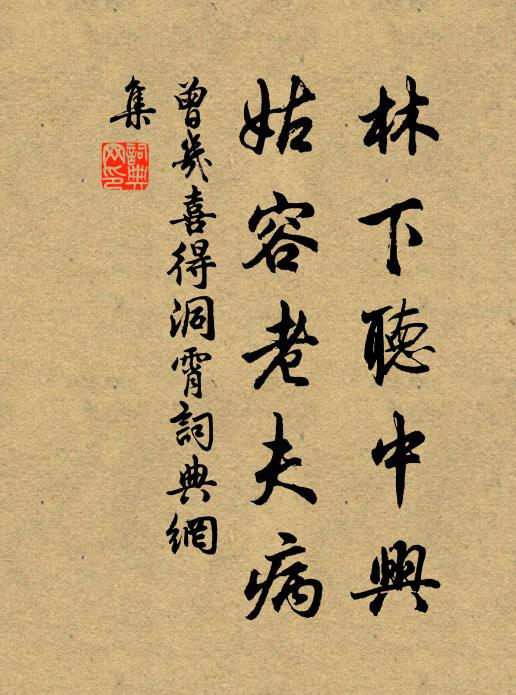 林下聽中興
姑容老夫病
曾幾喜得洞霄詞典網
集
詞典網印